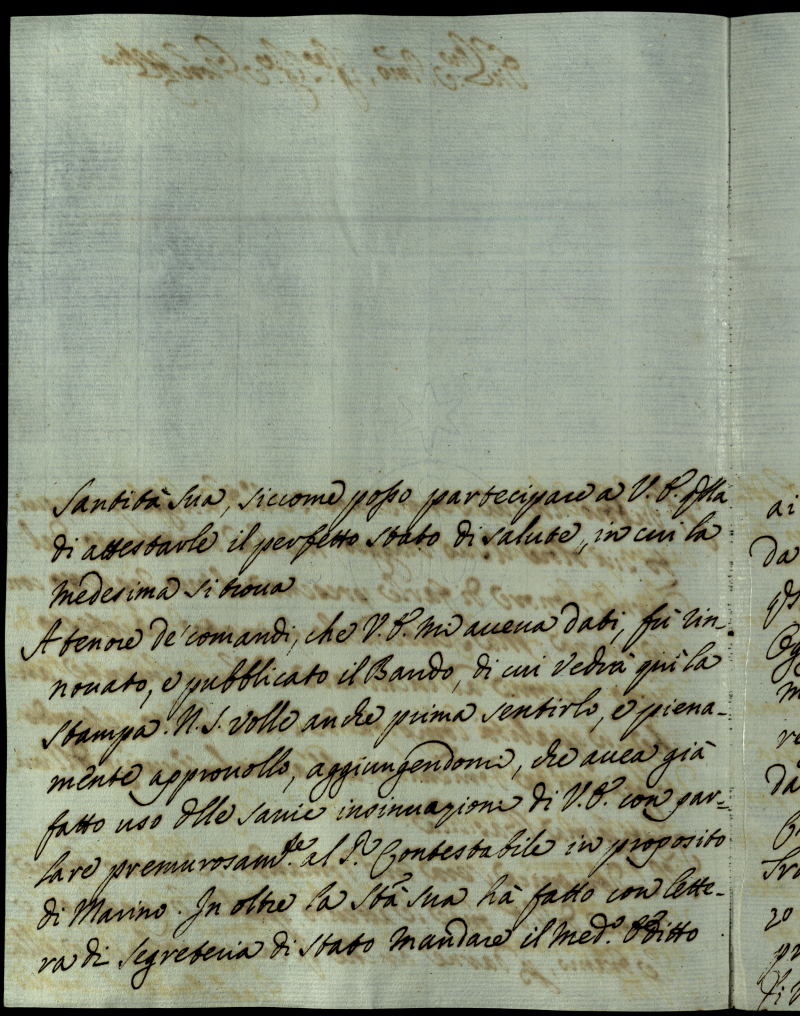 Santità Sua, siccome posso partecipare a V. E. qlla
di attestarle il perfetto stato di salute, in cui la
medesima si trova
A tenore de' comandi, che V. E. m'aveva dati, fù rin-
novato, e pubblicato il Bando, di cui vedrà quì la
stampa. N. S. volle anche prima sentirlo, e piena-
mente approvollo, aggiungendomi, che avea già
fatto uso dlle savie insinuazioni di V. E. con par-
lare premurosamte al Sr Contestabile in proposito
di Marino. In oltre la Stà Sua hà fatto con lette-
ra di Segreteria di Stato mandare il medo Editto
ai
da